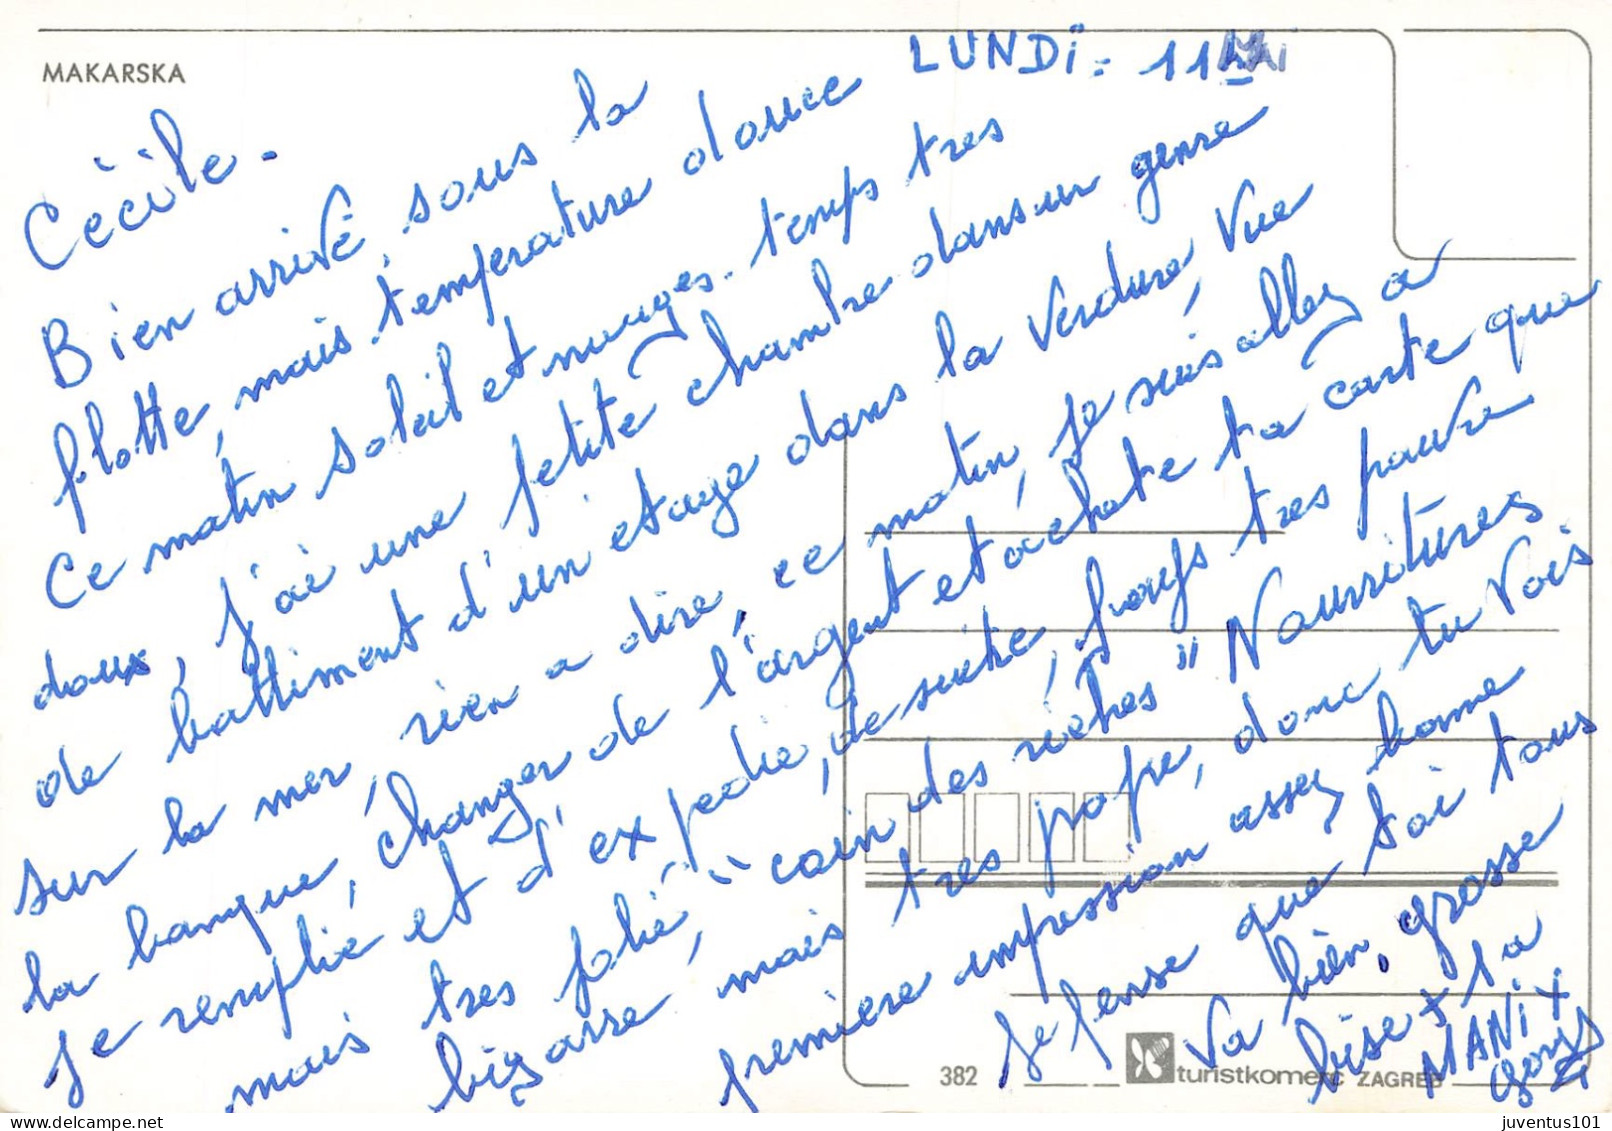 MAKARSKA
LUNDi = 11 MAi
Cécile -
Bien arrivé, sous la
flotte, mais temperature douce
Ce matin soleil et nuages. temps tres
doux, j'ai une petite chambre dans un genre
de battiment d'un etage dans la verdure, vue
sur la mer, rien a dire, ce matin, je suis alley a
la banque, changer de l'argent et achete ta carte que
je remplie et d'expedie, de suite, pays tres pauvre
mais tres jolie, "coin des riches" Nourritures
bizarre, mais tres propre, donc tu vois.
première impression assez bonne
Je pense que toi tous
va bien, grosse
bise + ta
MANiX
382
turistkomerc ZAGREB
juventus101